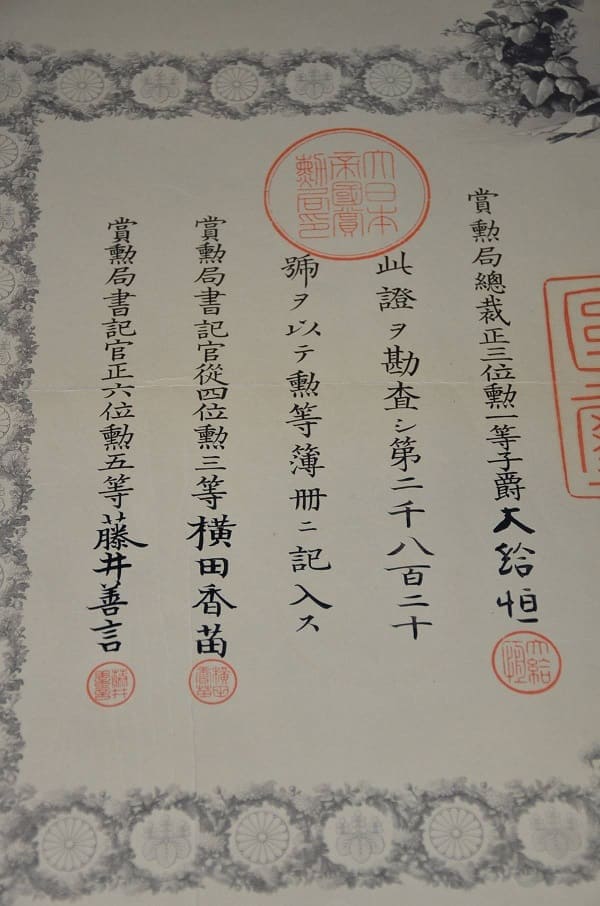 賞勲局總裁正三位勲一等子爵大給恒
大給恒
大日本
帝國賞
勲局印
此證ヲ勘査シ第二千八百二十
號ヲ以テ勲等簿册ニ記入ス
賞勲局書記官從四位勲三等橫田香苗
橫田香苗
賞勲局書記官正六位勲五等藤井善言
藤井善言